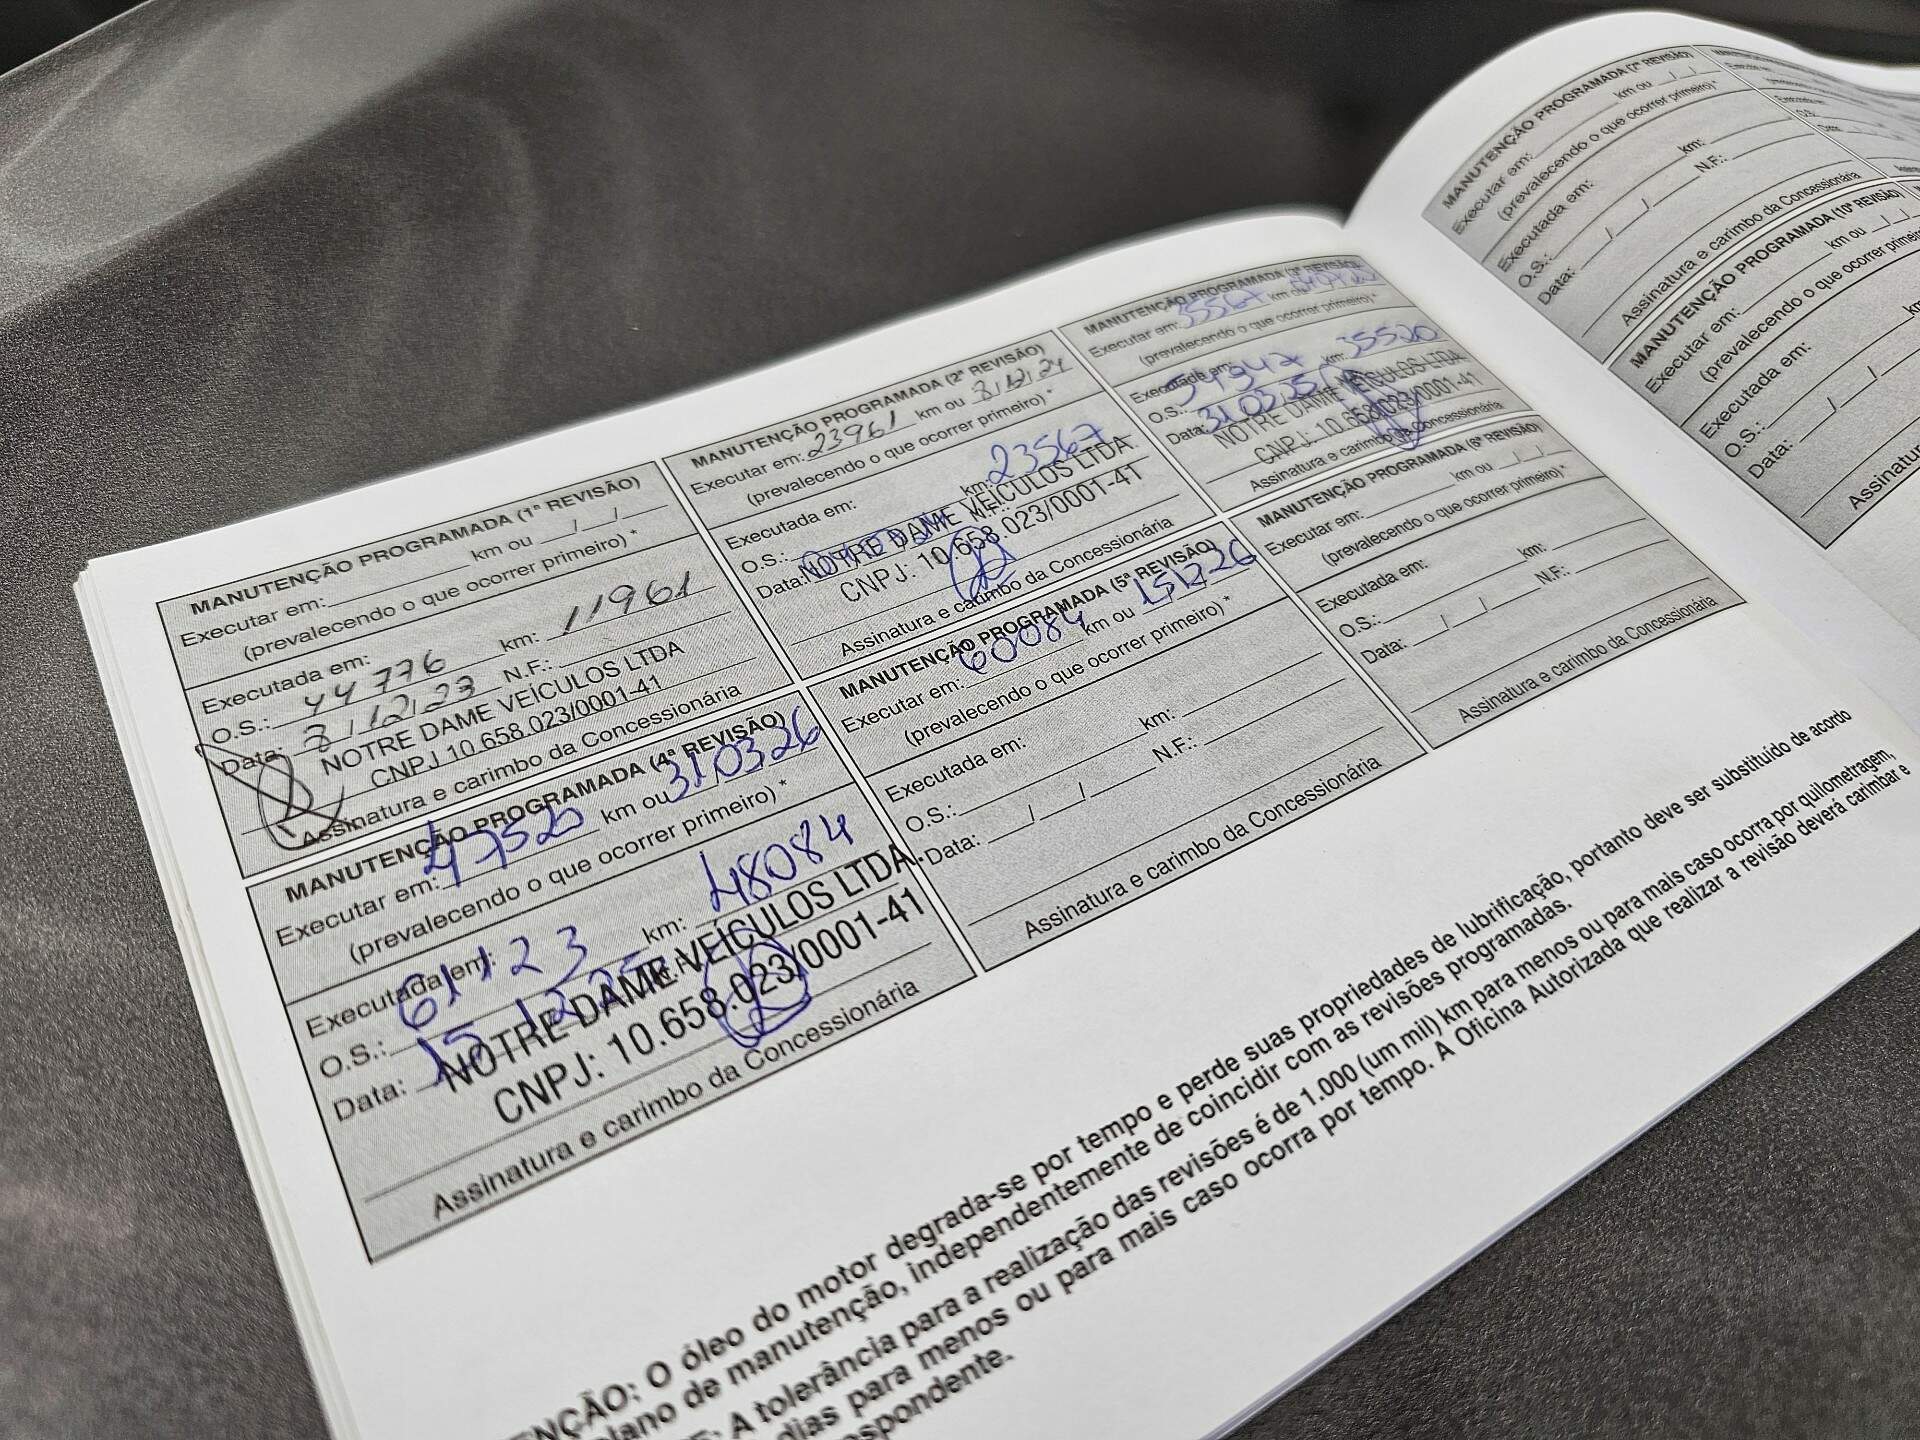 MANUTENÇÃO PROGRAMADA (1ª REVISÃO)
Executar em: km ou / /
(prevalecendo o que ocorrer primeiro) *
Executada em: km: 11961
O.S.: 44776 N.F.:
Data: 8/12/23
NOTRE DAME VEÍCULOS LTDA
CNPJ 10.658.023/0001-41
Assinatura e carimbo da Concessionária
MANUTENÇÃO PROGRAMADA (2ª REVISÃO)
Executar em: 23961 km ou 8/12/24
(prevalecendo o que ocorrer primeiro) *
Executada em: km: 23567
O.S.: N.F.:
Data:
NOTRE DAME VEÍCULOS LTDA.
CNPJ: 10.658.023/0001-41
Assinatura e carimbo da Concessionária
MANUTENÇÃO PROGRAMADA (3ª REVISÃO)
Executar em: 35567 km ou
(prevalecendo o que ocorrer primeiro) *
Executada em: km: 35520
O.S.: 54947
Data: 31/03/25
NOTRE DAME VEÍCULOS LTDA
CNPJ: 10.658.023/0001-41
Assinatura e carimbo da Concessionária
MANUTENÇÃO PROGRAMADA (4ª REVISÃO)
Executar em: 47520 km ou 31/03/26
(prevalecendo o que ocorrer primeiro) *
Executada em: km: 48084
O.S.: 61123
Data: 15 12 25
NOTRE DAME VEÍCULOS LTDA.
CNPJ: 10.658.023/0001-41
Assinatura e carimbo da Concessionária
MANUTENÇÃO PROGRAMADA (5ª REVISÃO)
Executar em: 60084 km ou 15/12/26
(prevalecendo o que ocorrer primeiro) *
Executada em: km:
O.S.: N.F.:
Data: / /
Assinatura e carimbo da Concessionária
MANUTENÇÃO PROGRAMADA (6ª REVISÃO)
Executar em: km ou / /
(prevalecendo o que ocorrer primeiro) *
Executada em: km:
O.S.: N.F.:
Data: / /
Assinatura e carimbo da Concessionária
ENÇÃO: O óleo do motor degrada-se por tempo e perde suas propriedades de lubrificação, portanto deve ser substituído de acordo
plano de manutenção, independentemente de coincidir com as revisões programadas.
A tolerância para a realização das revisões é de 1.000 (um mil) km para menos ou para mais caso ocorra por quilometragem,
dias para menos ou para mais caso ocorra por tempo. A Oficina Autorizada que realizar a revisão deverá carimbar e
espondente.
MANUTENÇÃO PROGRAMADA (7ª REVISÃO)
Executar em: km ou / /
(prevalecendo o que ocorrer primeiro) *
Executada em: km:
O.S.: N.F.:
Data: / /
Assinatura e carimbo da Concessionária
MANUTENÇÃO PROGRAMADA (10ª REVISÃO)
Executar em: km ou / /
(prevalecendo o que ocorrer primeiro)
Executada em: km
O.S.:
Data: / /
Assinatura